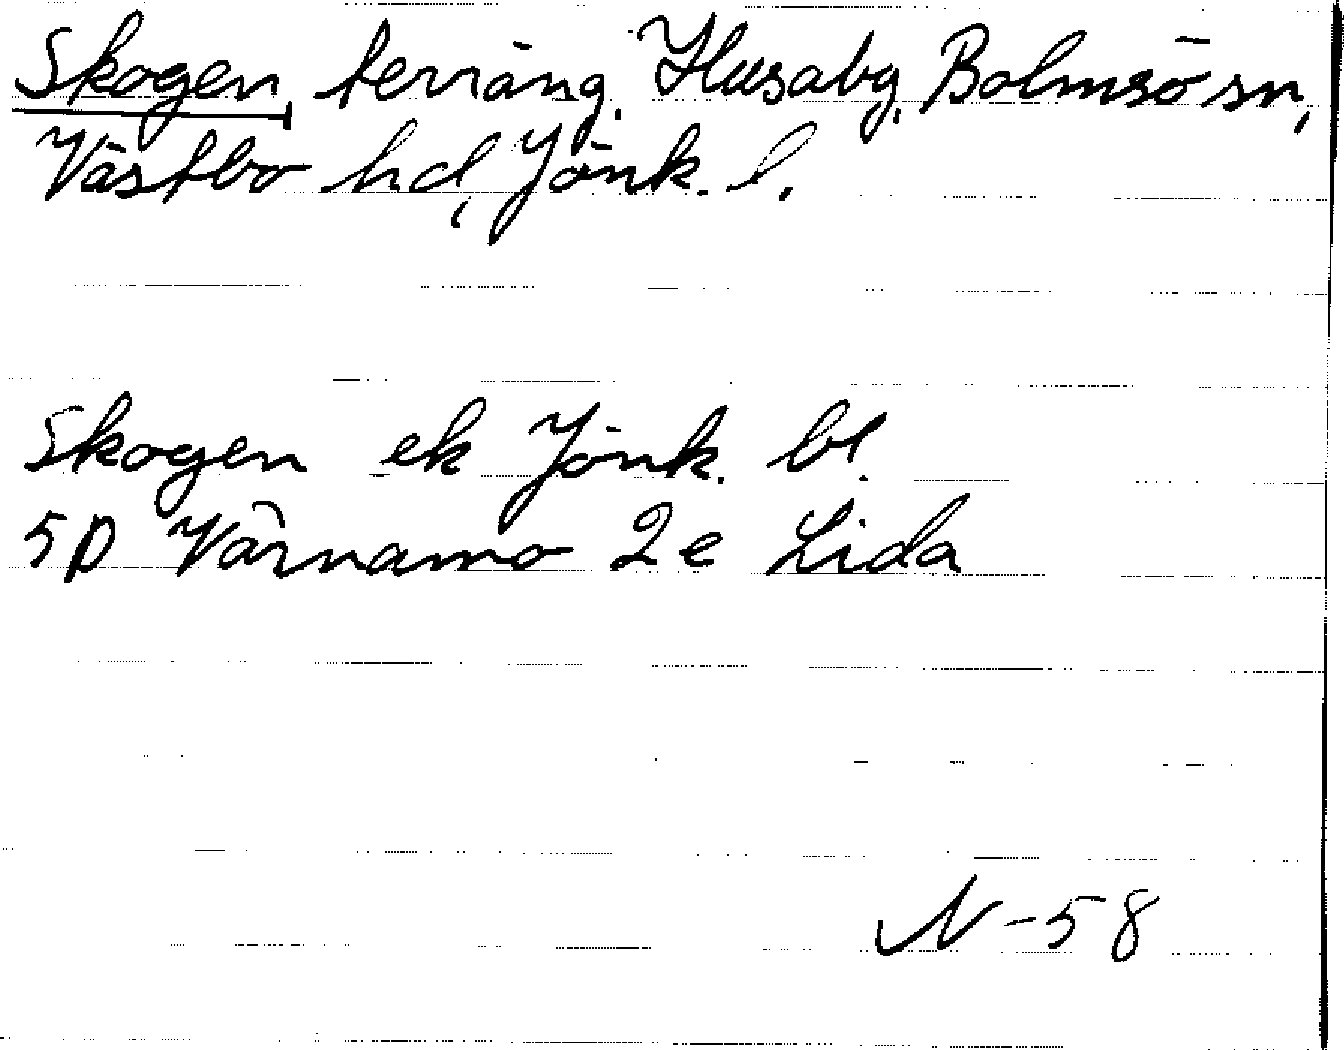 Skogen, terräng, Husaby, Bolmsö sn,
Västbo hd, Jönk. l.
Skogen ek Jönk. bl.
5D Värnamo 2e Lida
N-58